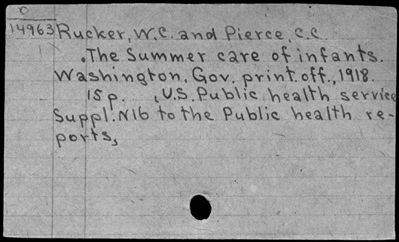 O
14963 Rucker, W.C. and Pierce, C.C.
.The Summer care of infants.
Washington, Gov. print. off., 1918.
15 p. , U.S. Public health service
Suppl. N16 to the Public health re-
ports,